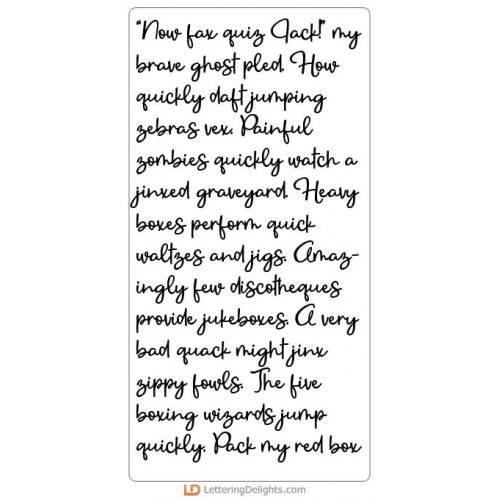 "Now fax quiz Jack!" my
brave ghost pled. How
quickly daft jumping
zebras vex. Painful
zombies quickly watch a
jinxed graveyard. Heavy
boxes perform quick
waltzes and jigs. Amaz-
ingly few discotheques
provide jukeboxes. A very
bad quack might jinx
zippy fowls. The five
boxing wizards jump
quickly. Pack my red box
LD LetteringDelights.com